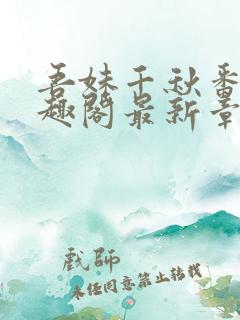 吾妹千秋番
趣阁最新章
戏师
未经同意禁止转载